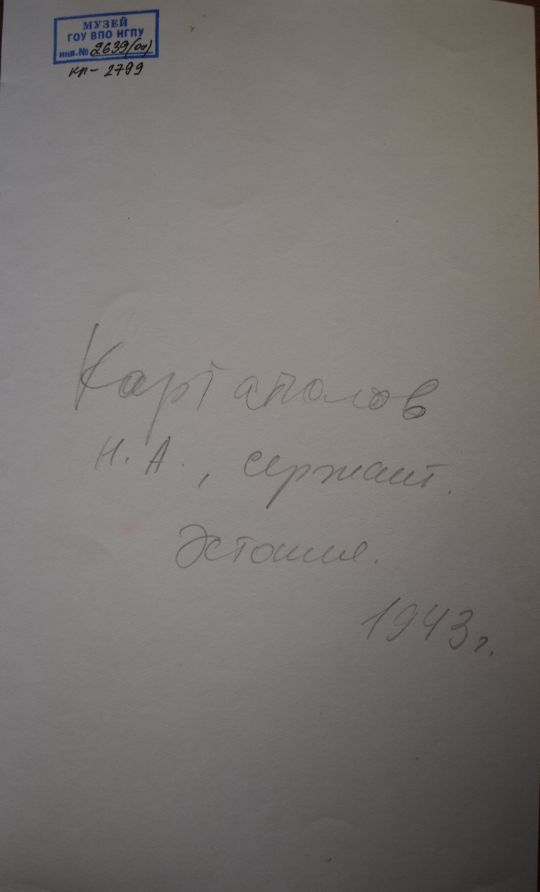 МУЗЕЙ
ГОУ ВПО НГПУ
инв.№ 2639(оо)
кп-2799
Картаполов
Н.А., сержант.
Эстония.
1943г.